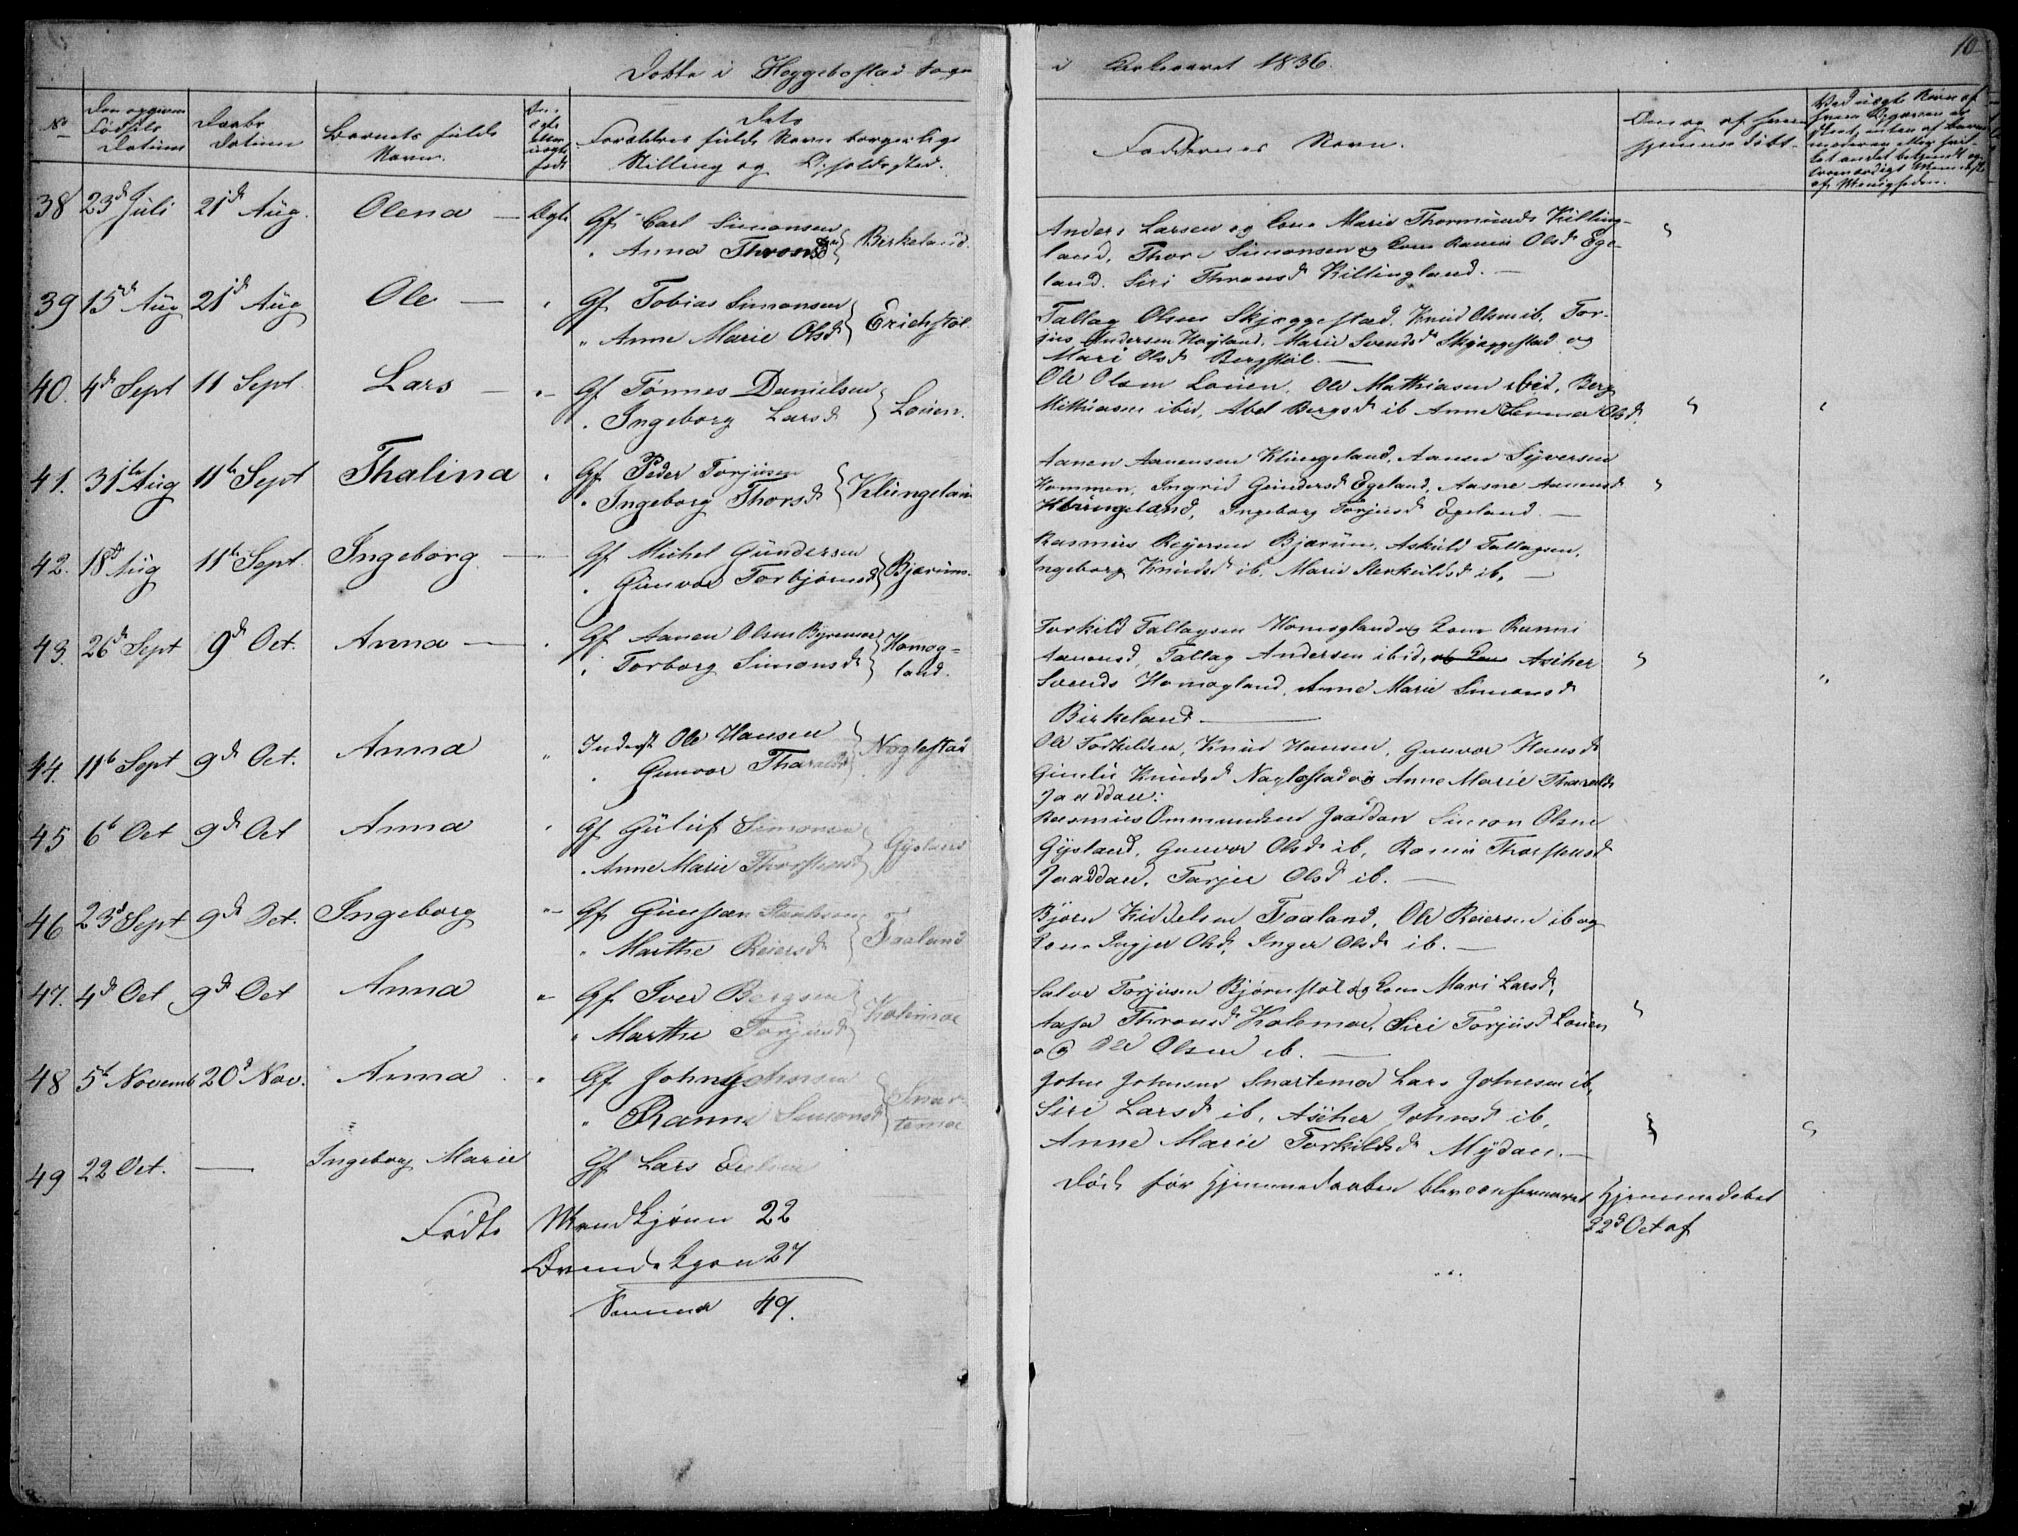 10
Døbte i Heggebostad Sogn i Kirkeaaret 1836.
No
Den opgivne Fødsels Datum
Daabs Datum
Barnets fulde Navn.
Om ægte eller uægte født
Dets Forældres fulde Navn borgerlige Stilling og Opholdssted.
Faddernes Navn.
Om og af hvem hjemmedøbt.
38 23d Juli 21d Aug. Olena — Ægte Gf Carl Simonsen
" Anna Thronsd } Birkeland.
Anders Larsen og Kone Marie Thormunds Killing-
land, Thore Simonsen og Kone Rannie Olsd Ege-
land. Siri Thronsd Killingland. —
39 15d Aug 21d Aug Ole — " Gf Tobias Simonsen
" Anne Marie Olsd } Erichstøl
Tallag Olsen Skjeggestad, Knud Olsen ib, Tor-
jus Andersen Høyland, Marie Svendsd Skjeggestad og
Mari Olsd Bergstøl. —
40. 4d Sept 11 Sept Lars — " Gf Tønnes Danielsen
" Ingeborg Larsd } Løüen.
Ole Olsen Løüen, Ole Mathiasen ibid, Berg
Mathiasen ibid, Abel Bergsd ib Anne Olsd.
41. 31te Aug 11te Sept Thalina " Gf Peder Torjüsen
" Ingeborg Thorsd } Klüngelan
Aanen Aanensen Klüngeland, Aanen Syversen
Hommen, Ingrid Gündersd Egeland, Aasne Aanensd
Klüngeland, Ingeborg Torjusd Egeland. —
42. 18d Aug 11te Sept. Ingeborg. — Gf Michel Gündersen
" Günvor Torbjørnsd } Bjærüm.
Rasmüs Reyersen Bjærüm, Askild Tallagsen,
Ingeborg Knüdsd ib, Marie Sterkuldsd ib. —
43. 26d Sept 9d Oct. Anna — " Gf Aanen Olsen Byremoe
" Torborg Simonsd } Homog-
land.
Torkild Tallagsen Homogland og Kone Ranni
Aanensd, Tallag Andersen ibid, og Kone Asiher
Svends Homogland, Anne Marie Simonsd
Birkeland —
44. 11te Sept 9d Oct. Anna " Inderst Ole Hansen
" Günvor Tharaldsd } Noglestad
Ole Torkildsen, Knud Hansen, Gunvor Hansd
Gunlie Knüdsd Noglestad og Anne Marie Tharalds
Jaaddan.
45 6t Oct 9d Oct Anna " Gf Gülüf Simonsen
" Anne Marie Thorstensd } Gysland
Rasmüs Ommundsen Jaaddan Simon Olsen
Gysland, Gunvor Olsd ib, Rannie Thorstensd
Jaaddan, Tarjer Olsd ib. —
46 23d Sept 9d Oct. Ingeborg " Gf Günsten
" Marthe Reiersd } Faaland
Bjørn Kiddelsen Faaland, Ole Reiersen ib og
Kone Ingjer Olsd, Inger Olsd ib. —
47. 4d Oct 9d Oct Anna " Gf Iver Bergsen
" Marthe Torjüsd } Kolemoe
Salve Torjüsen Bjørnstøl og Kone Mari Larsd,
Aasa Thronsd Kolemoe, Siri Torjüsd Løüen
og Ole Olsen ib. —
48 5t Novemb 20d Nov. Anna " Gf John Johnsen
" Ranne Simonsd } Snar-
temoe
John Johnsen Snartemoe Lars Johnsen ib,
Siri Larsd ib, Asiher Johnsd ib,
Anne Marie Torkildsd Mydan. —
49 22 Oct. — Ingeborg Marie Gf Lars
Død før Hjemmedaaben blev confirmeret Hjemmedøbt
22d Oct af
Fødte Mandkjønn 22
Qvindekjøn 27
Summa 49.